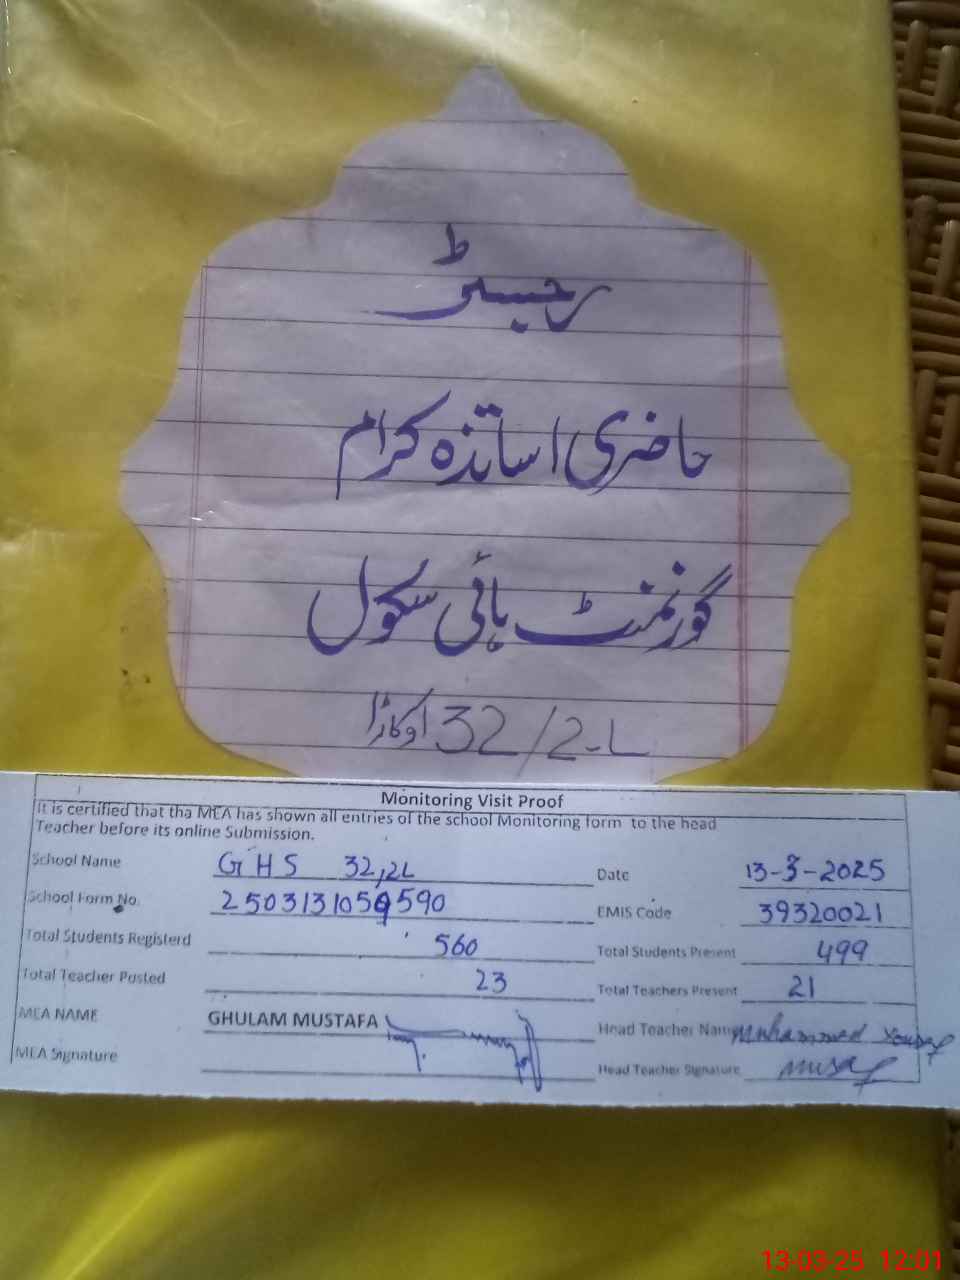 رجسٹر
حاضری اساتذہ کرام
گورنمنٹ ہائی سکول
32/2-L اوکاڑا
Monitoring Visit Proof
It is certified that tha MEA has shown all entries of the school Monitoring form to the head
Teacher before its online Submission.
School Name GHS 32,2L Date 13-3-2025
School Form No. 2503131059590 EMIS Code 39320021
Total Students Registerd 560 Total Students Present 499
Total Teacher Posted 23 Total Teachers Present 21
MEA NAME GHULAM MUSTAFA Head Teacher Name Muhammed Yousaf
MEA Signature Head Teacher Signature
13-03-25 12:01